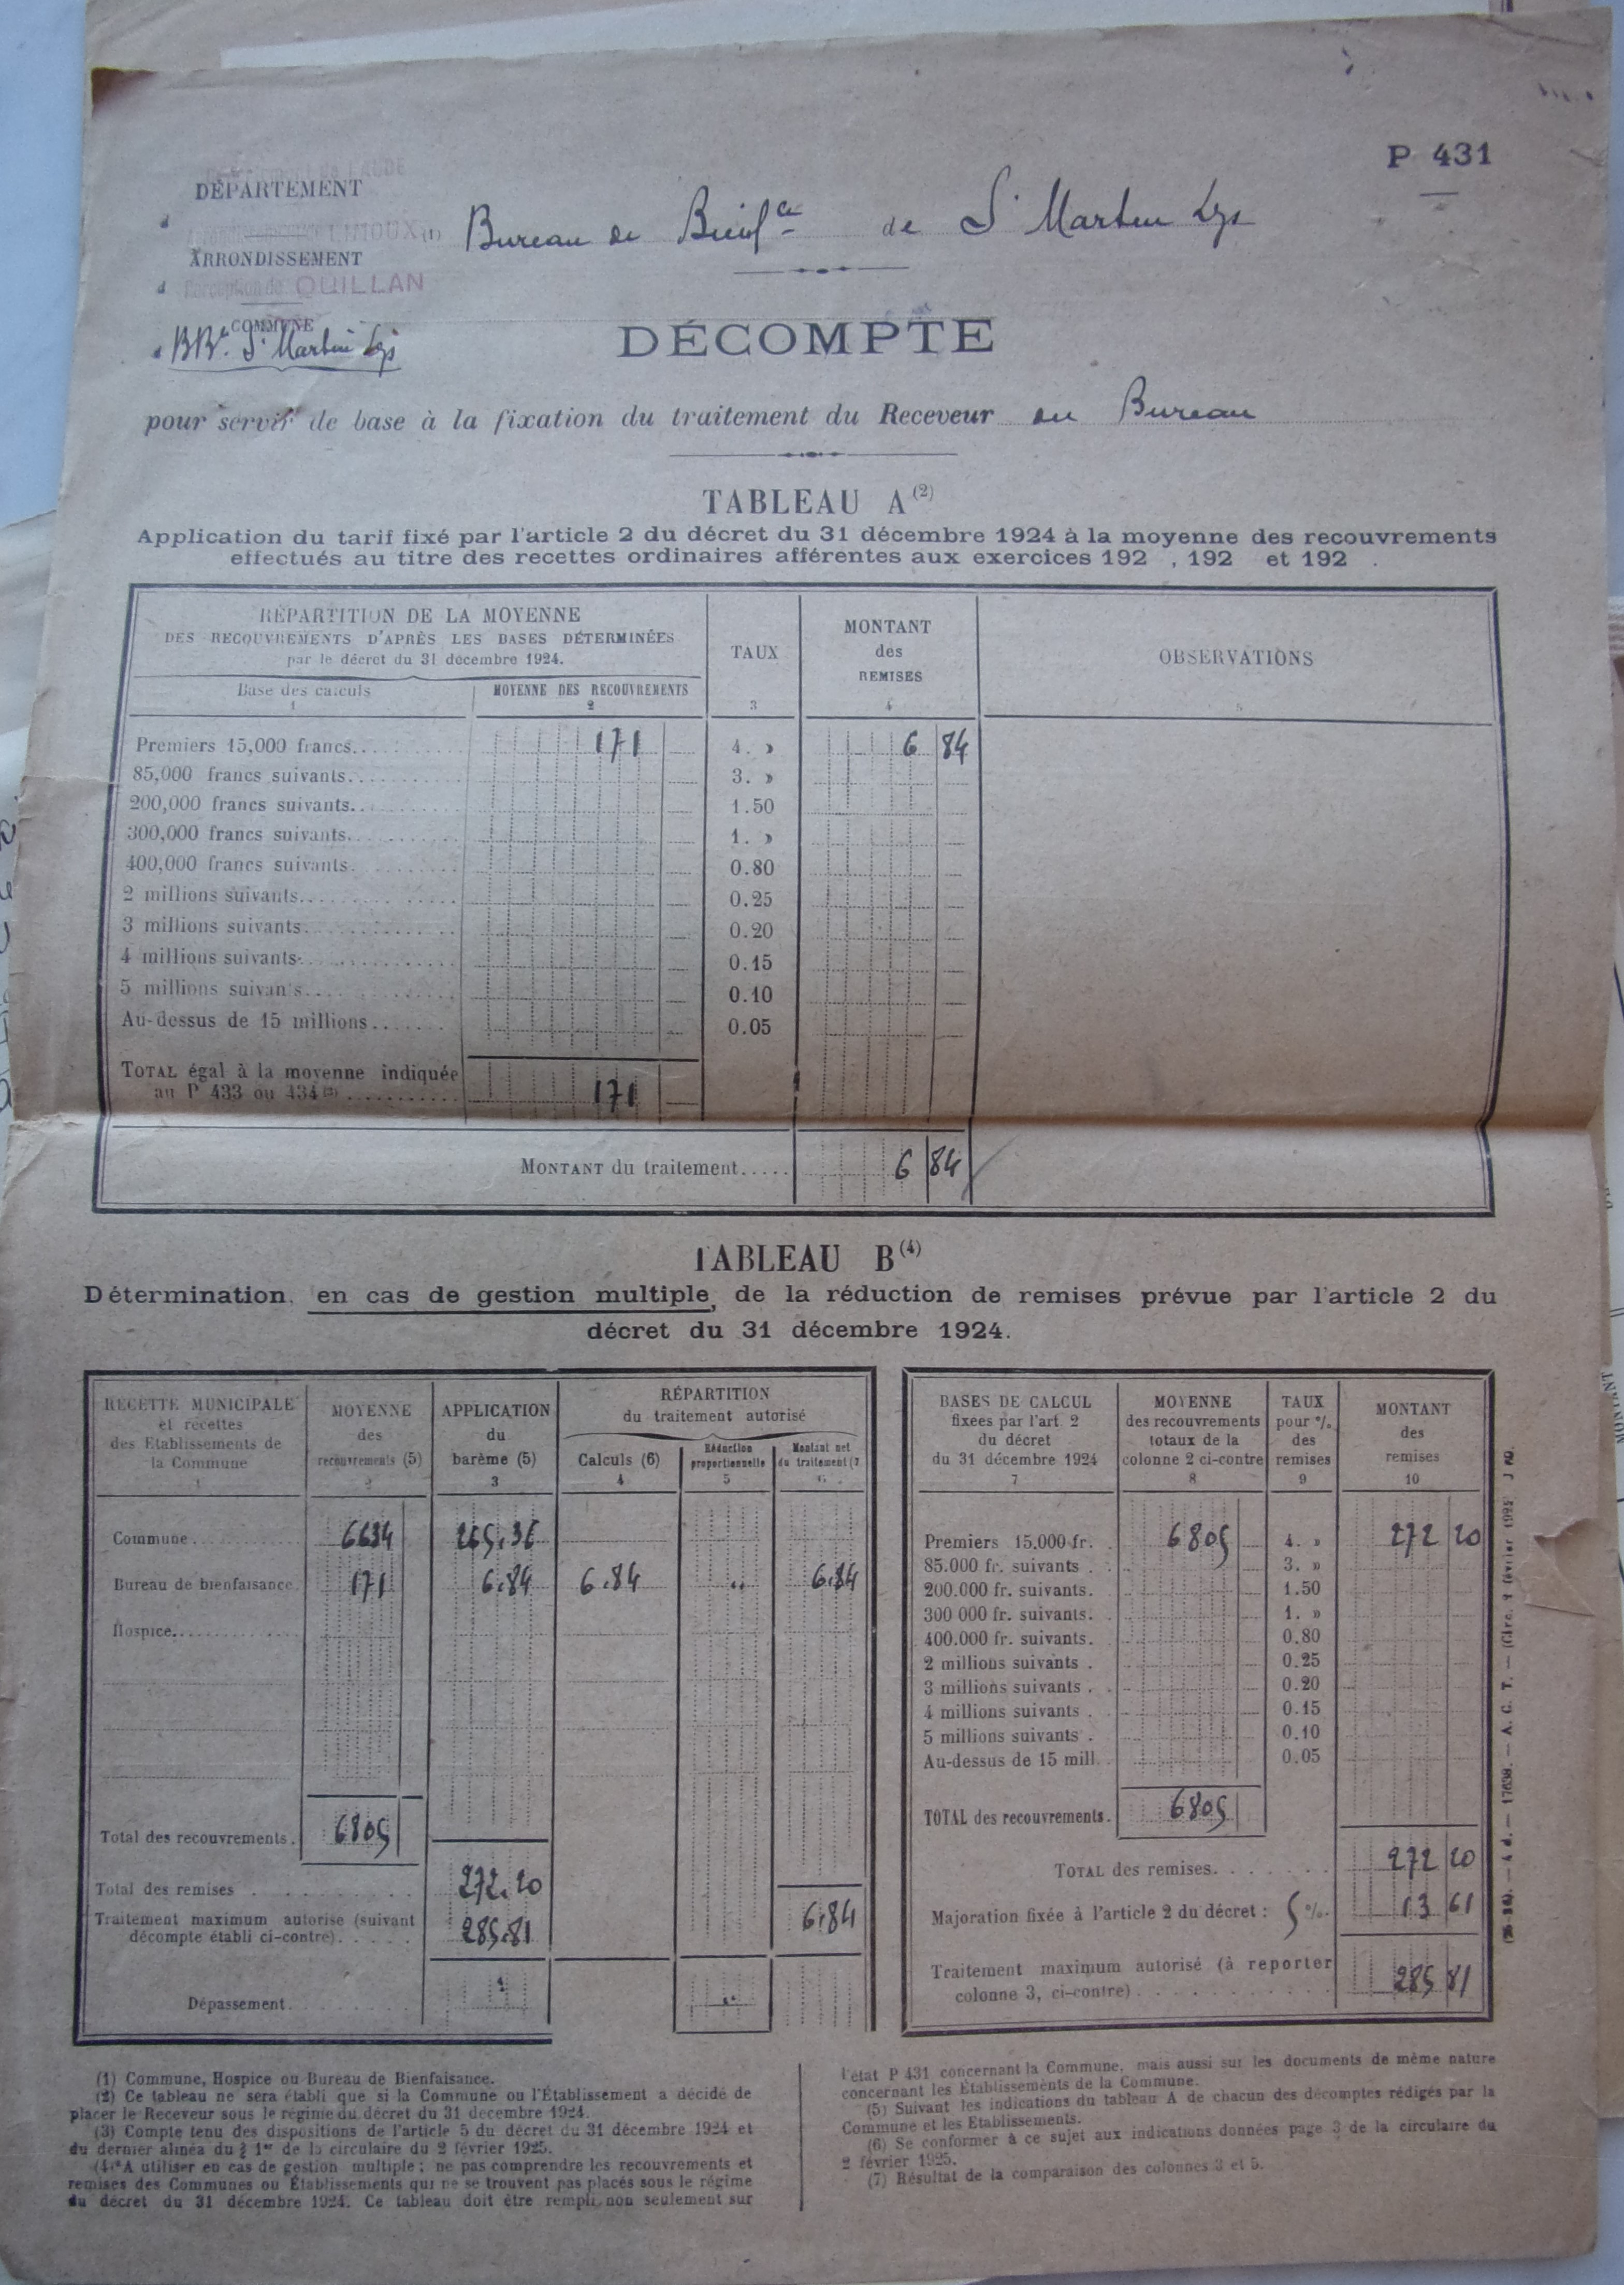 P 431
DÉPARTEMENT
LIMOUX (1) Bureau de Bienf ce de St Martin Lys
ARRONDISSEMENT
Perception de QUILLAN
COMMUNE
BBce St Martin Lys
DÉCOMPTE
pour servir de base à la fixation du traitement du Receveur du Bureau
TABLEAU A (2)
Application du tarif fixé par l'article 2 du décret du 31 décembre 1924 à la moyenne des recouvrements
effectués au titre des recettes ordinaires afférentes aux exercices 192 , 192 et 192 .
RÉPARTITION DE LA MOYENNE
DES RECOUVREMENTS D'APRÈS LES BASES DÉTERMINÉES
par le décret du 31 décembre 1924.
Base des calculs
1
MOYENNE DES RECOUVREMENTS
2
TAUX
3
MONTANT
des
REMISES
4
OBSERVATIONS
5
Premiers 15,000 francs... 171 4. » 6 84
85,000 francs suivants... 3. »
200,000 francs suivants... 1.50
300,000 francs suivants... 1. »
400,000 francs suivants. 0.80
2 millions suivants... 0.25
3 millions suivants... 0.20
4 millions suivants... 0.15
5 millions suivants... 0.10
Au-dessus de 15 millions... 0.05
TOTAL égal à la moyenne indiquée
au P 433 ou 434 (3)... 171
MONTANT du traitement..... 6 84
TABLEAU B (4)
Détermination, en cas de gestion multiple, de la réduction de remises prévue par l'article 2 du
décret du 31 décembre 1924.
RECETTE MUNICIPALE
et recettes
des Etablissements de
la Commune
1
MOYENNE
des
recouvrements (5)
2
APPLICATION
du
barème (5)
3
RÉPARTITION
du traitement autorisé
Calculs (6)
4
Réduction
proportionnelle
5
Montant net
du traitement (7
6
Commune... 6634 265.36
Bureau de bienfaisance 171 6.84 6.84 " 6.84
Hospice...
Total des recouvrements. 6805
Total des remises . 272.20
6.84
Traitement maximum autorisé (suivant
décompte établi ci-contre)..... 285.81
Dépassement. "
BASES DE CALCUL
fixées par l'art. 2
du décret
du 31 décembre 1924
7
MOYENNE
des recouvrements
totaux de la
colonne 2 ci-contre
8
TAUX
pour %
des
remises
9
MONTANT
des
remises
10
Premiers 15.000 fr. 6805 4. » 272 20
85.000 fr. suivants . 3. »
200.000 fr. suivants. 1.50
300 000 fr. suivants. 1. »
400.000 fr. suivants. 0.80
2 millions suivants . 0.25
3 millions suivants . 0.20
4 millions suivants . 0.15
5 millions suivants . 0.10
Au-dessus de 15 mill. 0.05
TOTAL des recouvrements. 6805
TOTAL des remises. 272 20
Majoration fixée à l'article 2 du décret : 5 %. 13 61
Traitement maximum autorisé (à reporter
colonne 3, ci-contre) 285 81
(1) Commune, Hospice ou Bureau de Bienfaisance.
(2) Ce tableau ne sera établi que si la Commune ou l'Établissement a décidé de
placer le Receveur sous le régime du décret du 31 décembre 1924.
(3) Compte tenu des dispositions de l'article 5 du décret du 31 décembre 1924 et
du dernier alinéa du § 1er de la circulaire du 2 février 1925.
(4) A utiliser en cas de gestion multiple ; ne pas comprendre les recouvrements et
remises des Communes ou Établissements qui ne se trouvent pas placés sous le régime
du décret du 31 décembre 1924. Ce tableau doit être rempli non seulement sur
l'état P 431 concernant la Commune, mais aussi sur les documents de même nature
concernant les Etablissements de la Commune.
(5) Suivant les indications du tableau A de chacun des décomptes rédigés par la
Commune et les Etablissements.
(6) Se conformer à ce sujet aux indications données page 3 de la circulaire du
2 février 1925.
(7) Résultat de la comparaison des colonnes 3 et 5.